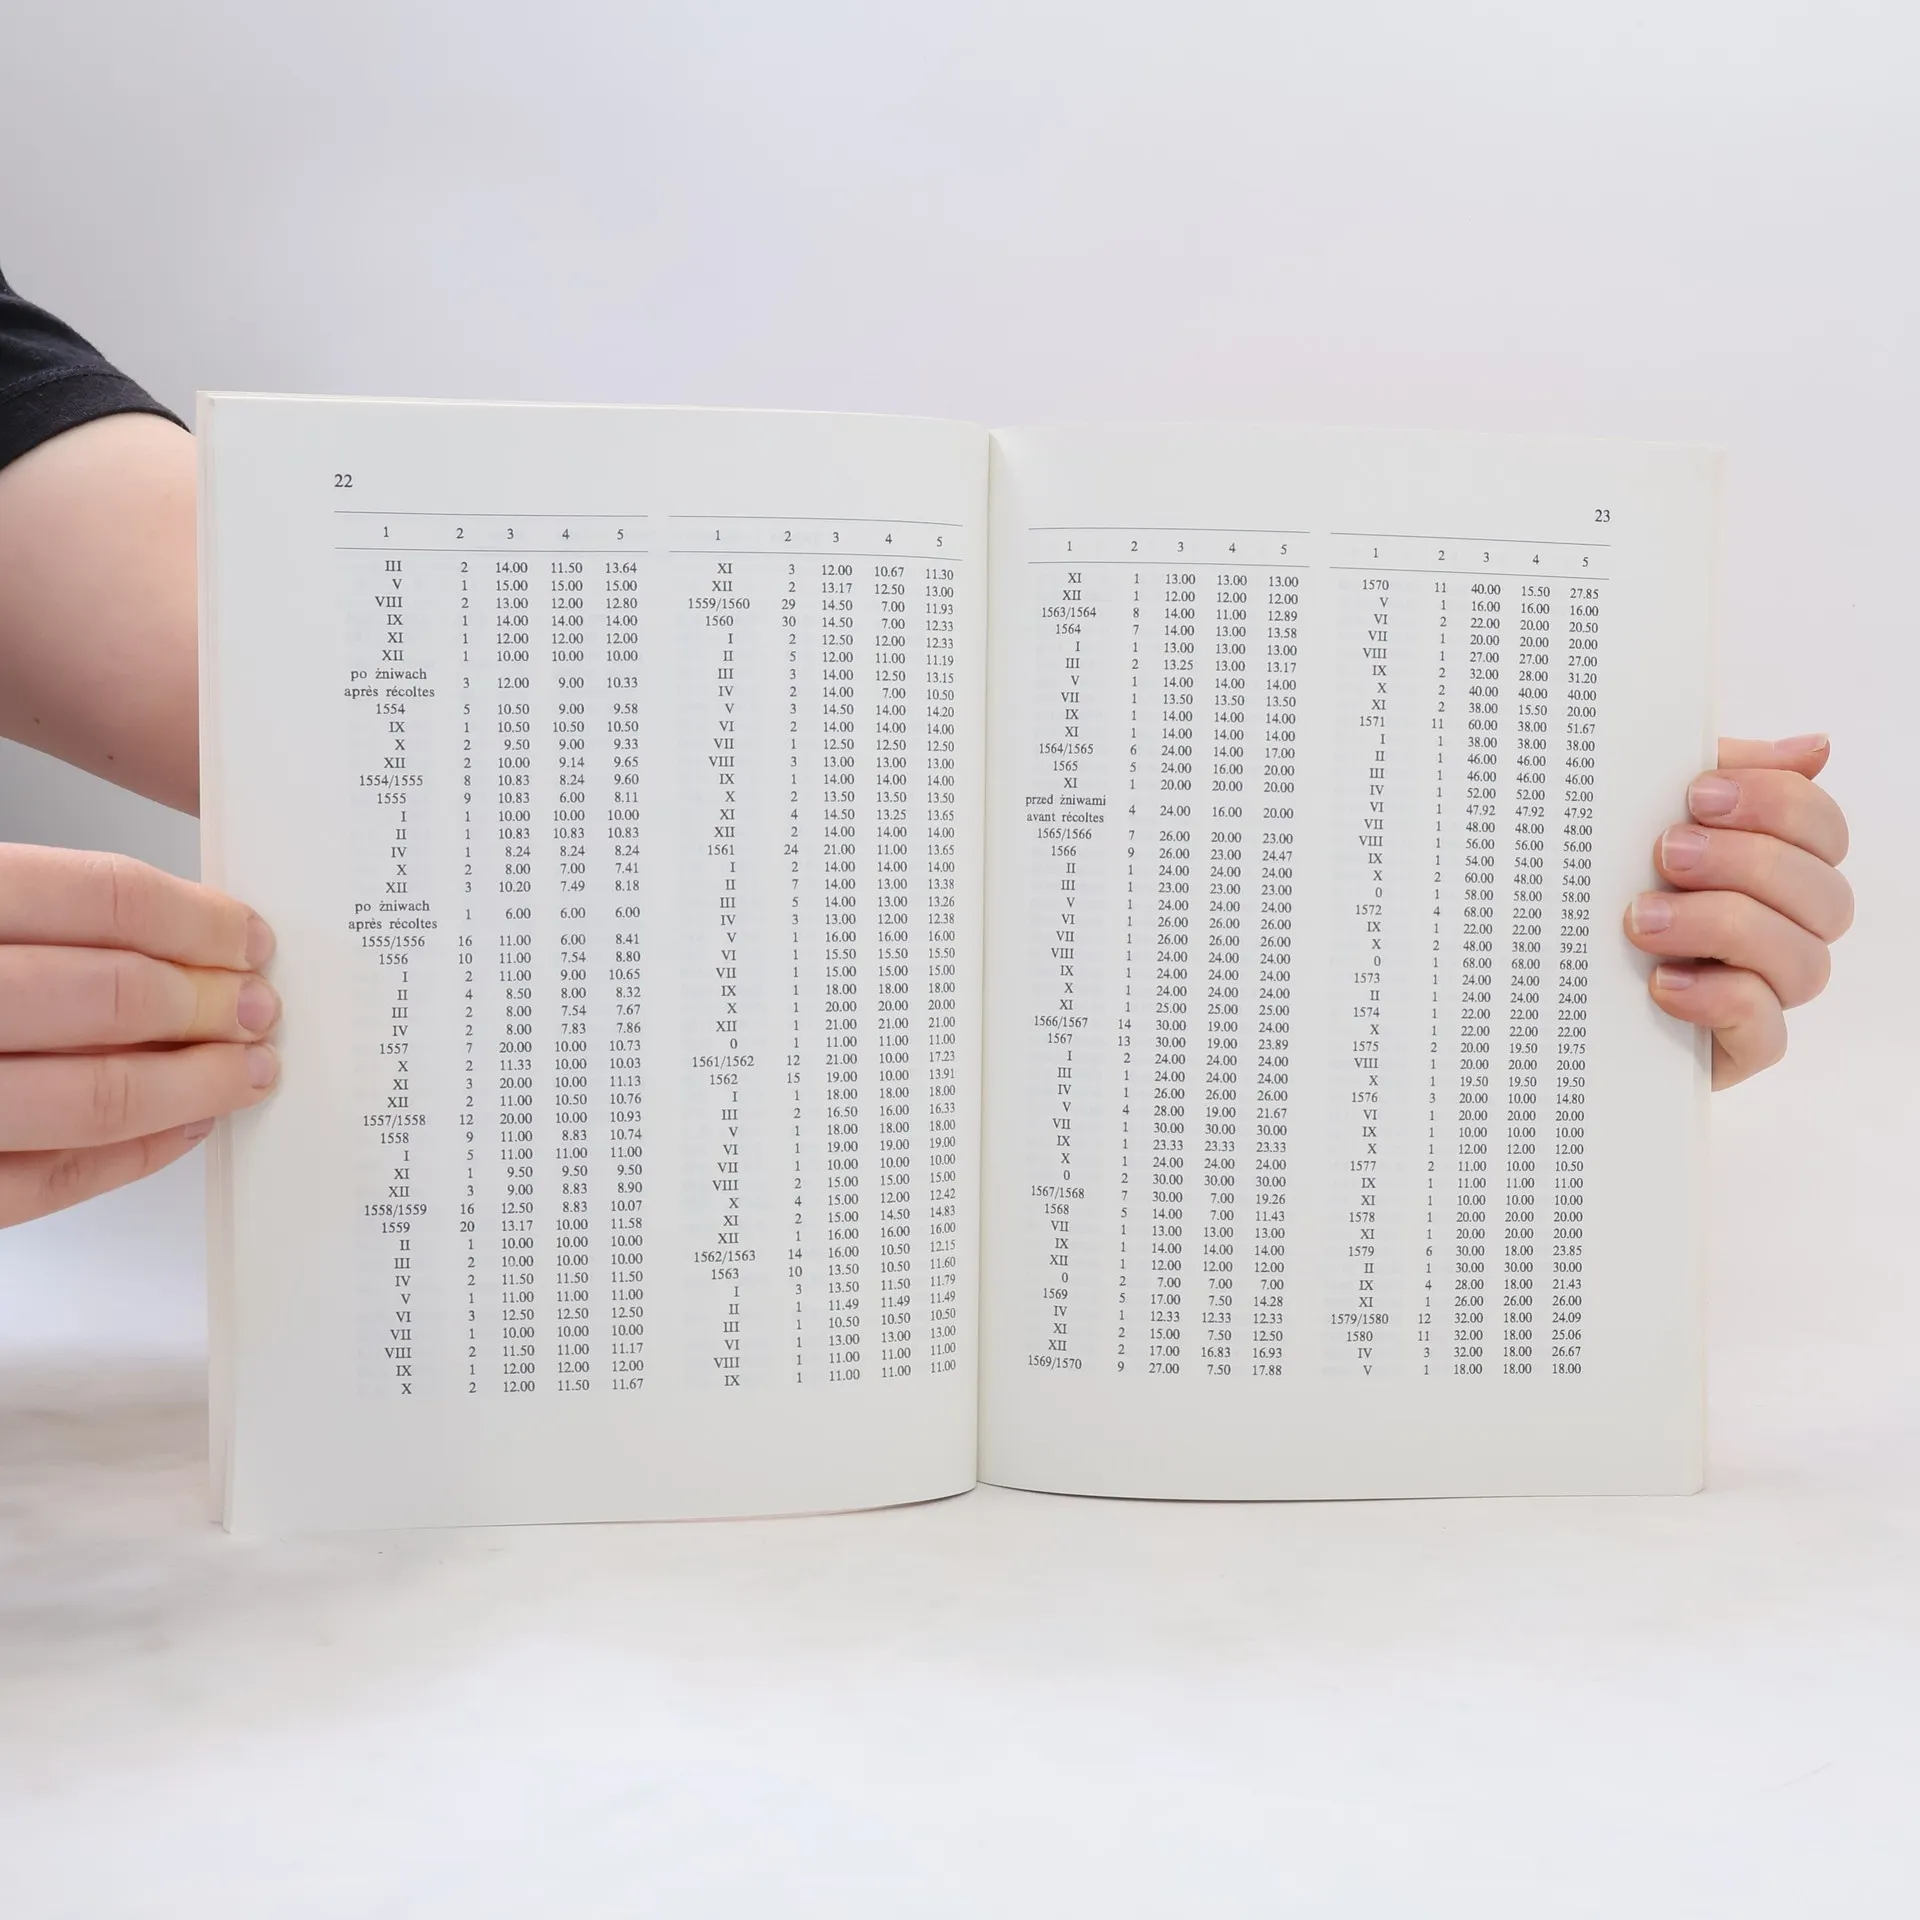 22
1 2 3 4 5
III 2 14.00 11.50 13.64
V 1 15.00 15.00 15.00
VIII 2 13.00 12.00 12.80
IX 1 14.00 14.00 14.00
XI 1 12.00 12.00 12.00
XII 1 10.00 10.00 10.00
po żniwach
après récoltes 3 12.00 9.00 10.33
1554 5 10.50 9.00 9.58
IX 1 10.50 10.50 10.50
X 2 9.50 9.00 9.33
XII 2 10.00 9.14 9.65
1554/1555 8 10.83 8.24 9.60
1555 9 10.83 6.00 8.11
I 1 10.00 10.00 10.00
II 1 10.83 10.83 10.83
IV 1 8.24 8.24 8.24
X 2 8.00 7.00 7.41
XII 3 10.20 7.49 8.18
po żniwach
après récoltes 1 6.00 6.00 6.00
1555/1556 16 11.00 6.00 8.41
1556 10 11.00 7.54 8.80
I 2 11.00 9.00 10.65
II 4 8.50 8.00 8.32
III 2 8.00 7.54 7.67
IV 2 8.00 7.83 7.86
1557 7 20.00 10.00 10.73
X 2 11.33 10.00 10.03
XI 3 20.00 10.00 11.13
XII 2 11.00 10.50 10.76
1557/1558 12 20.00 10.00 10.93
1558 9 11.00 8.83 10.74
I 5 11.00 11.00 11.00
XI 1 9.50 9.50 9.50
XII 3 9.00 8.83 8.90
1558/1559 16 12.50 8.83 10.07
1559 20 13.17 10.00 11.58
II 1 10.00 10.00 10.00
III 2 10.00 10.00 10.00
IV 2 11.50 11.50 11.50
V 1 11.00 11.00 11.00
VI 3 12.50 12.50 12.50
VII 1 10.00 10.00 10.00
VIII 2 11.50 11.00 11.17
IX 1 12.00 12.00 12.00
X 2 12.00 11.50 11.67
1 2 3 4 5
XI 3 12.00 10.67 11.30
XII 2 13.17 12.50 13.00
1559/1560 29 14.50 7.00 11.93
1560 30 14.50 7.00 12.33
I 2 12.50 12.00 12.33
II 5 12.00 11.00 11.19
III 3 14.00 12.50 13.15
IV 2 14.00 7.00 10.50
V 3 14.50 14.00 14.20
VI 2 14.00 14.00 14.00
VII 1 12.50 12.50 12.50
VIII 3 13.00 13.00 13.00
IX 1 14.00 14.00 14.00
X 2 13.50 13.50 13.50
XI 4 14.50 13.25 13.65
XII 2 14.00 14.00 14.00
1561 24 21.00 11.00 13.65
I 2 14.00 14.00 14.00
II 7 14.00 13.00 13.38
III 5 14.00 13.00 13.26
IV 3 13.00 12.00 12.38
V 1 16.00 16.00 16.00
VI 1 15.50 15.50 15.50
VII 1 15.00 15.00 15.00
IX 1 18.00 18.00 18.00
X 1 20.00 20.00 20.00
XII 1 21.00 21.00 21.00
0 1 11.00 11.00 11.00
1561/1562 12 21.00 10.00 17.23
1562 15 19.00 10.00 13.91
I 1 18.00 18.00 18.00
III 2 16.50 16.00 16.33
V 1 18.00 18.00 18.00
VI 1 19.00 19.00 19.00
VII 1 10.00 10.00 10.00
VIII 2 15.00 15.00 15.00
X 4 15.00 12.00 12.42
XI 2 15.00 14.50 14.83
XII 1 16.00 16.00 16.00
1562/1563 14 16.00 10.50 12.15
1563 10 13.50 10.50 11.60
I 3 13.50 11.50 11.79
II 1 11.49 11.49 11.49
III 1 10.50 10.50 10.50
VI 1 13.00 13.00 13.00
VIII 1 11.00 11.00 11.00
IX 1 11.00 11.00 11.00
23
1 2 3 4 5
XI 1 13.00 13.00 13.00
XII 1 12.00 12.00 12.00
1563/1564 8 14.00 11.00 12.89
1564 7 14.00 13.00 13.58
I 1 13.00 13.00 13.00
III 2 13.25 13.00 13.17
V 1 14.00 14.00 14.00
VII 1 13.50 13.50 13.50
IX 1 14.00 14.00 14.00
XI 1 14.00 14.00 14.00
1564/1565 6 24.00 14.00 17.00
1565 5 24.00 16.00 20.00
XI 1 20.00 20.00 20.00
przed żniwami
avant récoltes 4 24.00 16.00 20.00
1565/1566 7 26.00 20.00 23.00
1566 9 26.00 23.00 24.47
II 1 24.00 24.00 24.00
III 1 23.00 23.00 23.00
V 1 24.00 24.00 24.00
VI 1 26.00 26.00 26.00
VII 1 26.00 26.00 26.00
VIII 1 24.00 24.00 24.00
IX 1 24.00 24.00 24.00
X 1 24.00 24.00 24.00
XI 1 25.00 25.00 25.00
1566/1567 14 30.00 19.00 24.00
1567 13 30.00 19.00 23.89
I 2 24.00 24.00 24.00
III 1 24.00 24.00 24.00
IV 1 26.00 26.00 26.00
V 4 28.00 19.00 21.67
VII 1 30.00 30.00 30.00
IX 1 23.33 23.33 23.33
X 1 24.00 24.00 24.00
0 2 30.00 30.00 30.00
1567/1568 7 30.00 7.00 19.26
1568 5 14.00 7.00 11.43
VII 1 13.00 13.00 13.00
IX 1 14.00 14.00 14.00
XII 1 12.00 12.00 12.00
0 2 7.00 7.00 7.00
1569 5 17.00 7.50 14.28
IV 1 12.33 12.33 12.33
XI 2 15.00 7.50 12.50
XII 2 17.00 16.83 16.93
1569/1570 9 27.00 7.50 17.88
1 2 3 4 5
1570 11 40.00 15.50 27.85
V 1 16.00 16.00 16.00
VI 2 22.00 20.00 20.50
VII 1 20.00 20.00 20.00
VIII 1 27.00 27.00 27.00
IX 2 32.00 28.00 31.20
X 2 40.00 40.00 40.00
XI 2 38.00 15.50 20.00
1571 11 60.00 38.00 51.67
I 1 38.00 38.00 38.00
II 1 46.00 46.00 46.00
III 1 46.00 46.00 46.00
IV 1 52.00 52.00 52.00
VI 1 47.92 47.92 47.92
VII 1 48.00 48.00 48.00
VIII 1 56.00 56.00 56.00
IX 1 54.00 54.00 54.00
X 2 60.00 48.00 54.00
0 1 58.00 58.00 58.00
1572 4 68.00 22.00 38.92
IX 1 22.00 22.00 22.00
X 2 48.00 38.00 39.21
0 1 68.00 68.00 68.00
1573 1 24.00 24.00 24.00
II 1 24.00 24.00 24.00
1574 1 22.00 22.00 22.00
X 1 22.00 22.00 22.00
1575 2 20.00 19.50 19.75
VIII 1 20.00 20.00 20.00
X 1 19.50 19.50 19.50
1576 3 20.00 10.00 14.80
VI 1 20.00 20.00 20.00
IX 1 10.00 10.00 10.00
X 1 12.00 12.00 12.00
1577 2 11.00 10.00 10.50
IX 1 11.00 11.00 11.00
XI 1 10.00 10.00 10.00
1578 1 20.00 20.00 20.00
XI 1 20.00 20.00 20.00
1579 6 30.00 18.00 23.85
II 1 30.00 30.00 30.00
IX 4 28.00 18.00 21.43
XI 1 26.00 26.00 26.00
1579/1580 12 32.00 18.00 24.09
1580 11 32.00 18.00 25.06
IV 3 32.00 18.00 26.67
V 1 18.00 18.00 18.00